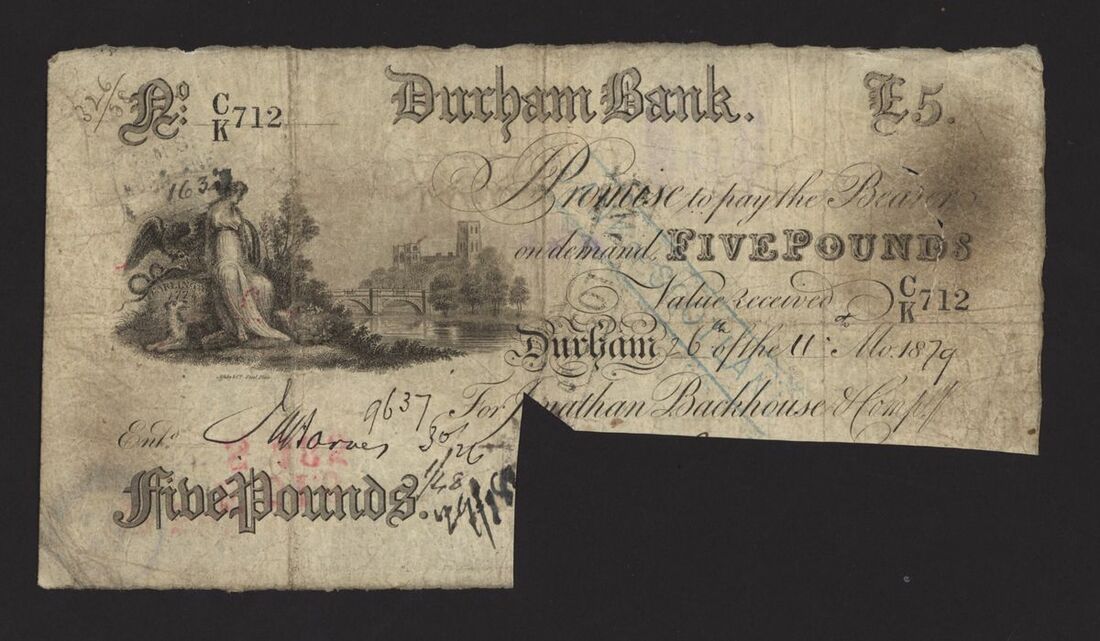 326/
No: C/K 712
Durham Bank. £5.
163
I Promise to pay the Bearer
on demand, FIVE POUNDS
Value received C/K 712
Durham 26th of the 11 Mo. 1879
For Jonathan Backhouse & Compy
9637
Entd.
30/
1/48
Five Pounds.